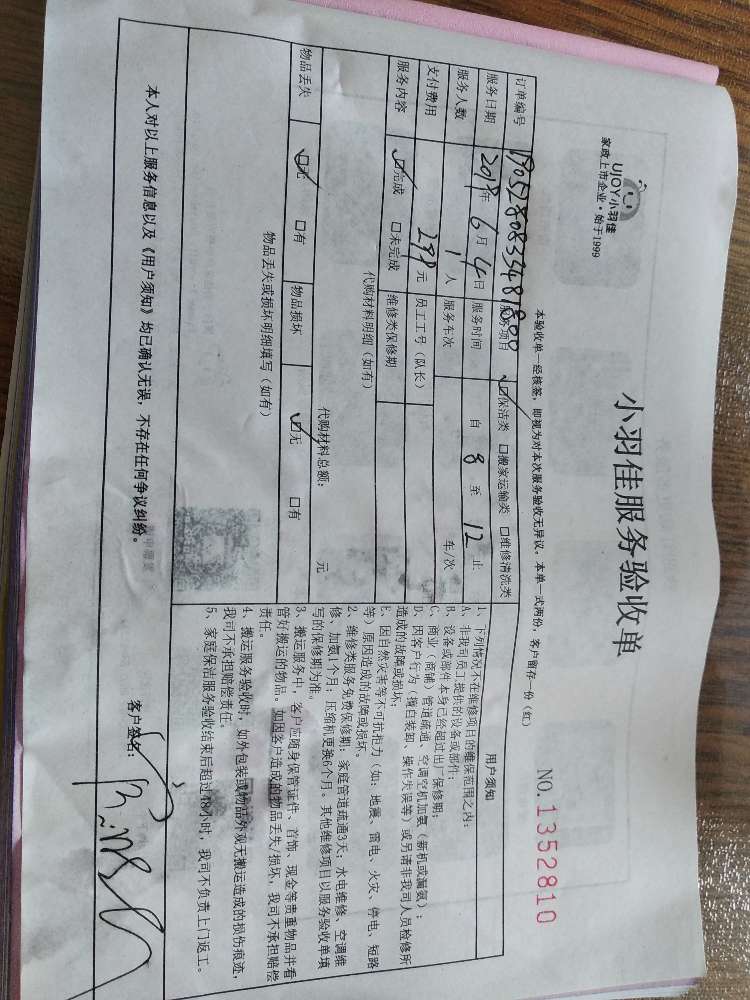 UJOY小羽佳
家政上市企业·始于1999
小羽佳服务验收单
NO. 1352810
本验收单一经核签，即视为对本次服务验收无异议，本单一式两份，客户留存一份（红）
订单编号 服务项目 ☑保洁类 □搬家运输类 □维修清洗类
服务日期 2019年 6月 4日 服务时间 自 8 至 12 止
服务人数 1 人 服务车次 车/次
支付费用 299 元 员工工号（队长）
服务内容 ☑完成 □未完成 维修类保修期
代购材料明细（如有）
代购材料总额： 元
物品丢失 ☑无 □有 物品损坏 ☑无 □有
物品丢失或损坏明细填写（如有）
用户须知
1、下列情况不在维修项目的维保范围之内：
A、非我司员工提供的设备或部件；
B、设备或部件本身已经超过出厂保修期；
C、商业（商铺）管道疏通、空调空机加氨（新机或漏氨）；
D、因客户行为（擅自装卸、操作失误等）或另请非我司人员检修所
造成的故障或损坏；
E、因自然灾害等不可抗拒力（如：地震、雷电、火灾、停电、短路
等）原因造成的故障或损坏。
2、维修类服务免费保修期：家庭管道疏通3天；水电维修、空调维
修、加氨1个月；压缩机更换6个月。其他维修项目以服务验收单填
写的保修期为准。
3、搬运服务中，客户应随身保管证件、首饰、现金等贵重物品并看
管好搬运的物品。如因客户造成的物品丢失/损坏，我司不承担赔偿
责任。
4、搬运服务验收时，如外包装或物品外观无搬运造成的损伤痕迹，
我司不承担赔偿责任。
5、家庭保洁服务验收结束后超过48小时，我司不负责上门返工。
本人对以上服务信息以及《用户须知》均已确认无误，不存在任何争议纠纷。
客户签名：